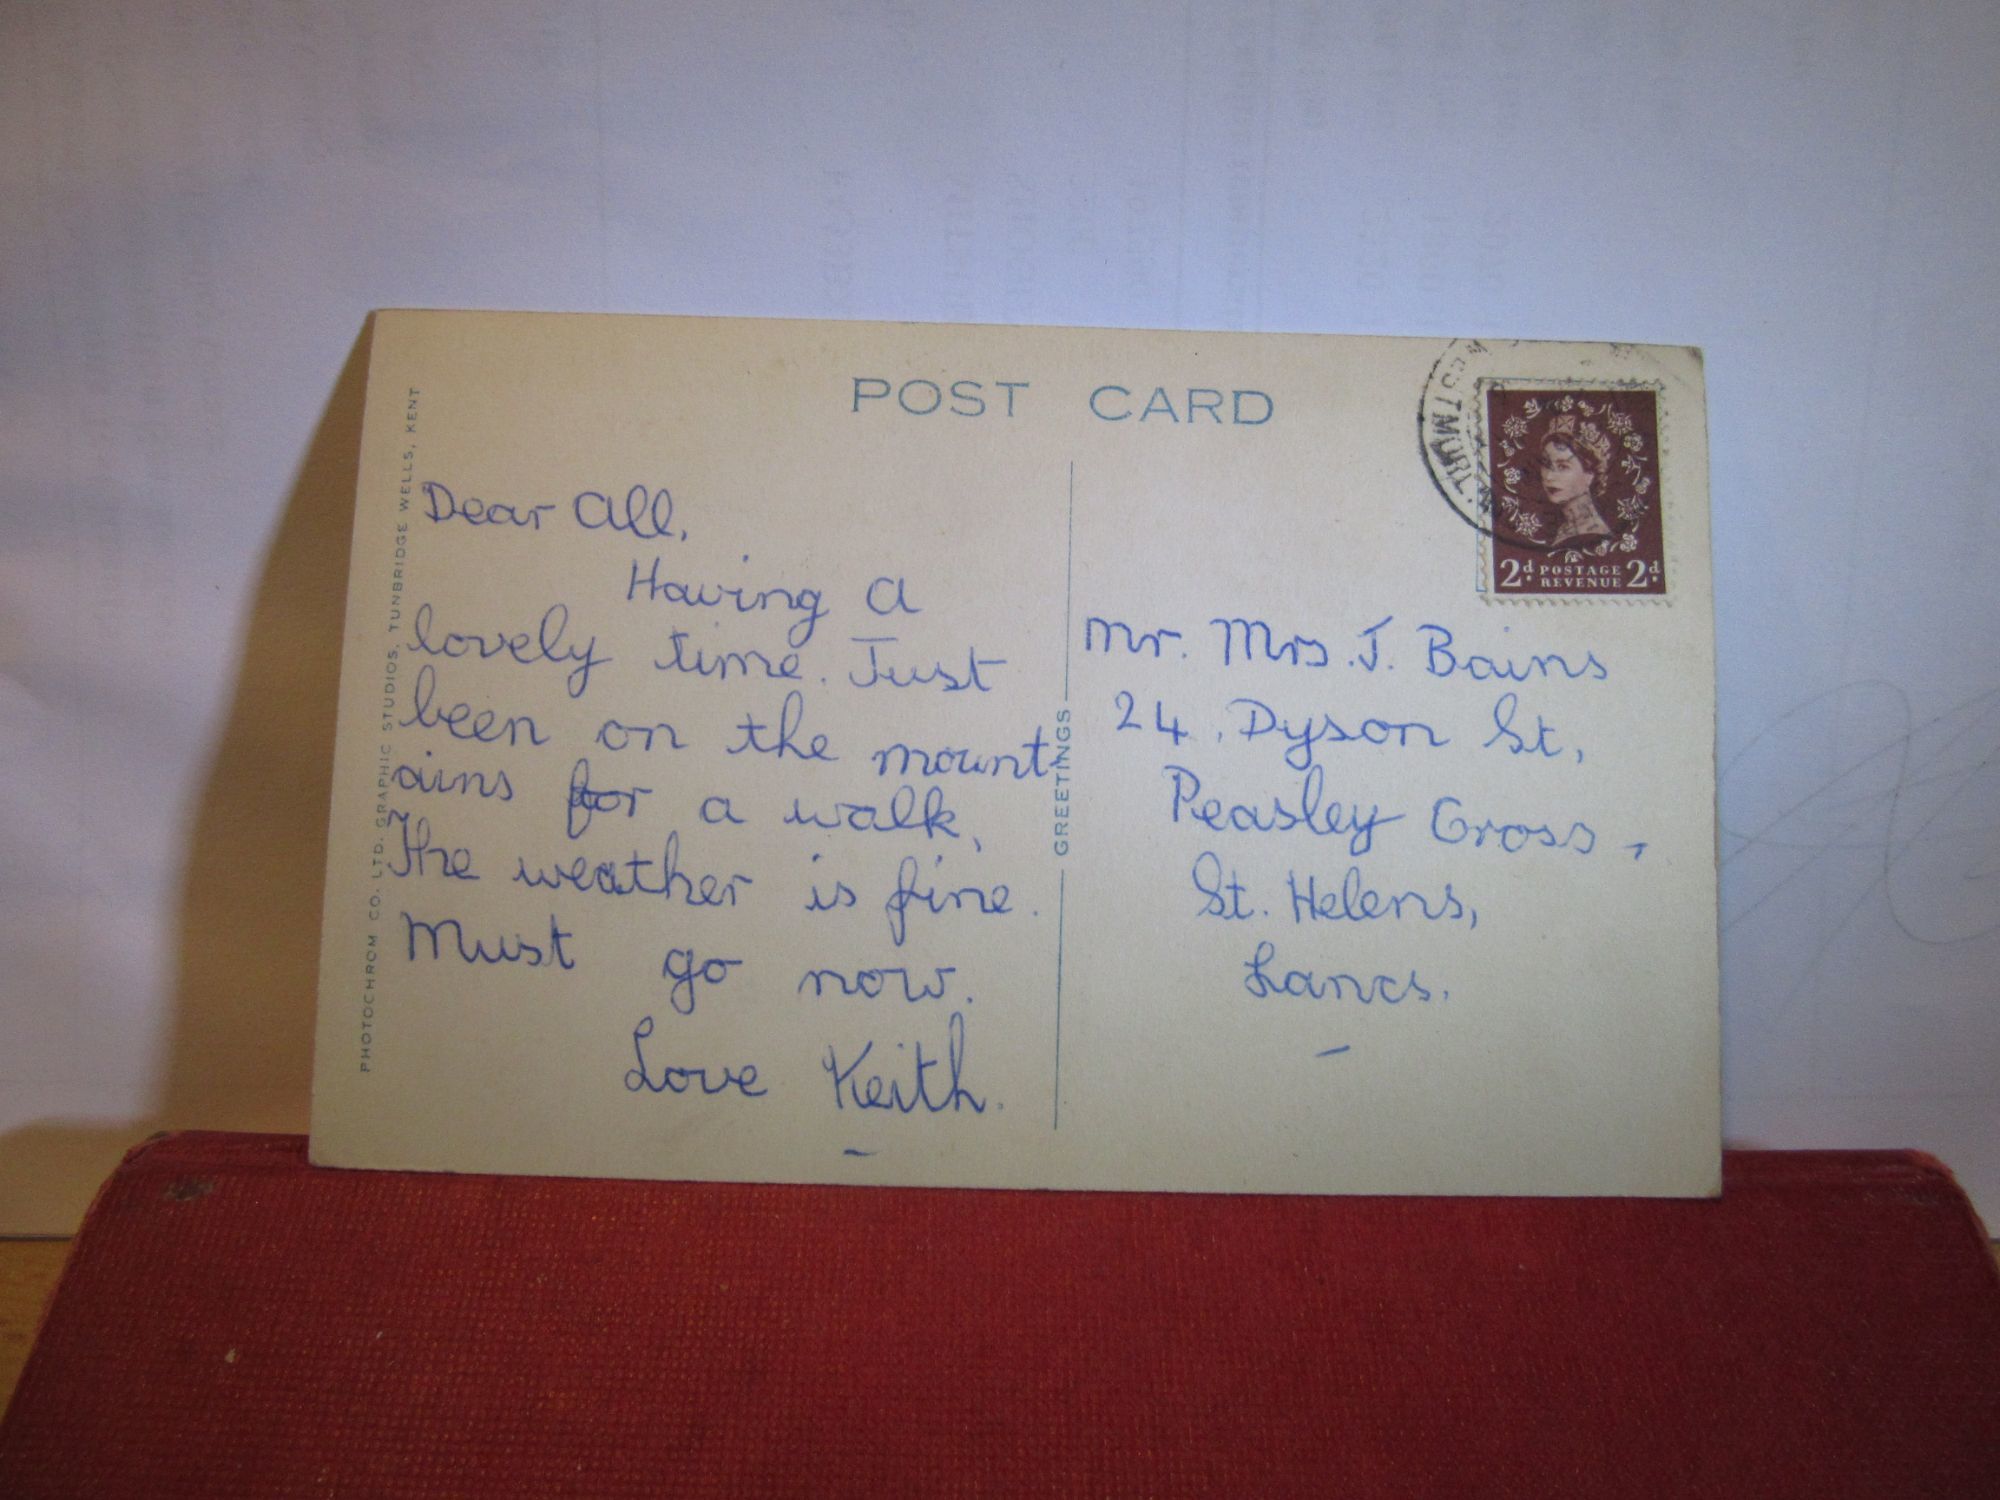 POST CARD
Dear All,
Having a
lovely time. Just
been on the mount-
ains for a walk,
The weather is fine.
Must go now.
Love Keith.
PHOTOCHROM CO. LTD. GRAPHIC STUDIOS, TUNBRIDGE WELLS, KENT
GREETINGS
WESTMORLAND
2d. POSTAGE 2d.
REVENUE
Mr. Mrs. J. Bains
24, Dyson St,
Peasley Cross,
St. Helens,
Lancs.